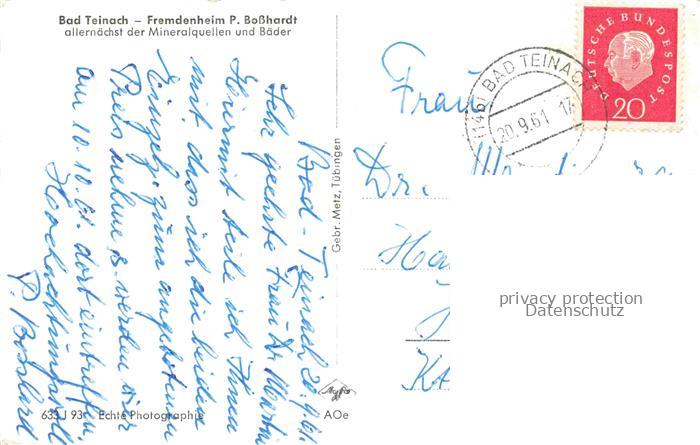 Bad Teinach – Fremdenheim P. Boßhardt
allernächst der Mineralquellen und Bäder
Bad-Teinach 20.9.61.
Sehr geehrte Frau Dr. Martin
Hiermit teile ich Ihnen
mit dass ich die beiden
Einzelz. zum angebotenen
Preis nehme & werden wir
am 10.10.61. dort eintreffen.
Hochachtungsvoll
P. Bosshard
Gebr. Metz, Tübingen
635 J 93 Echte Photographie
AOe
Frau
Dr.
DEUTSCHE BUNDESPOST
20
(14b) BAD TEINACH
20.9.61 17
privacy protection
Datenschutz